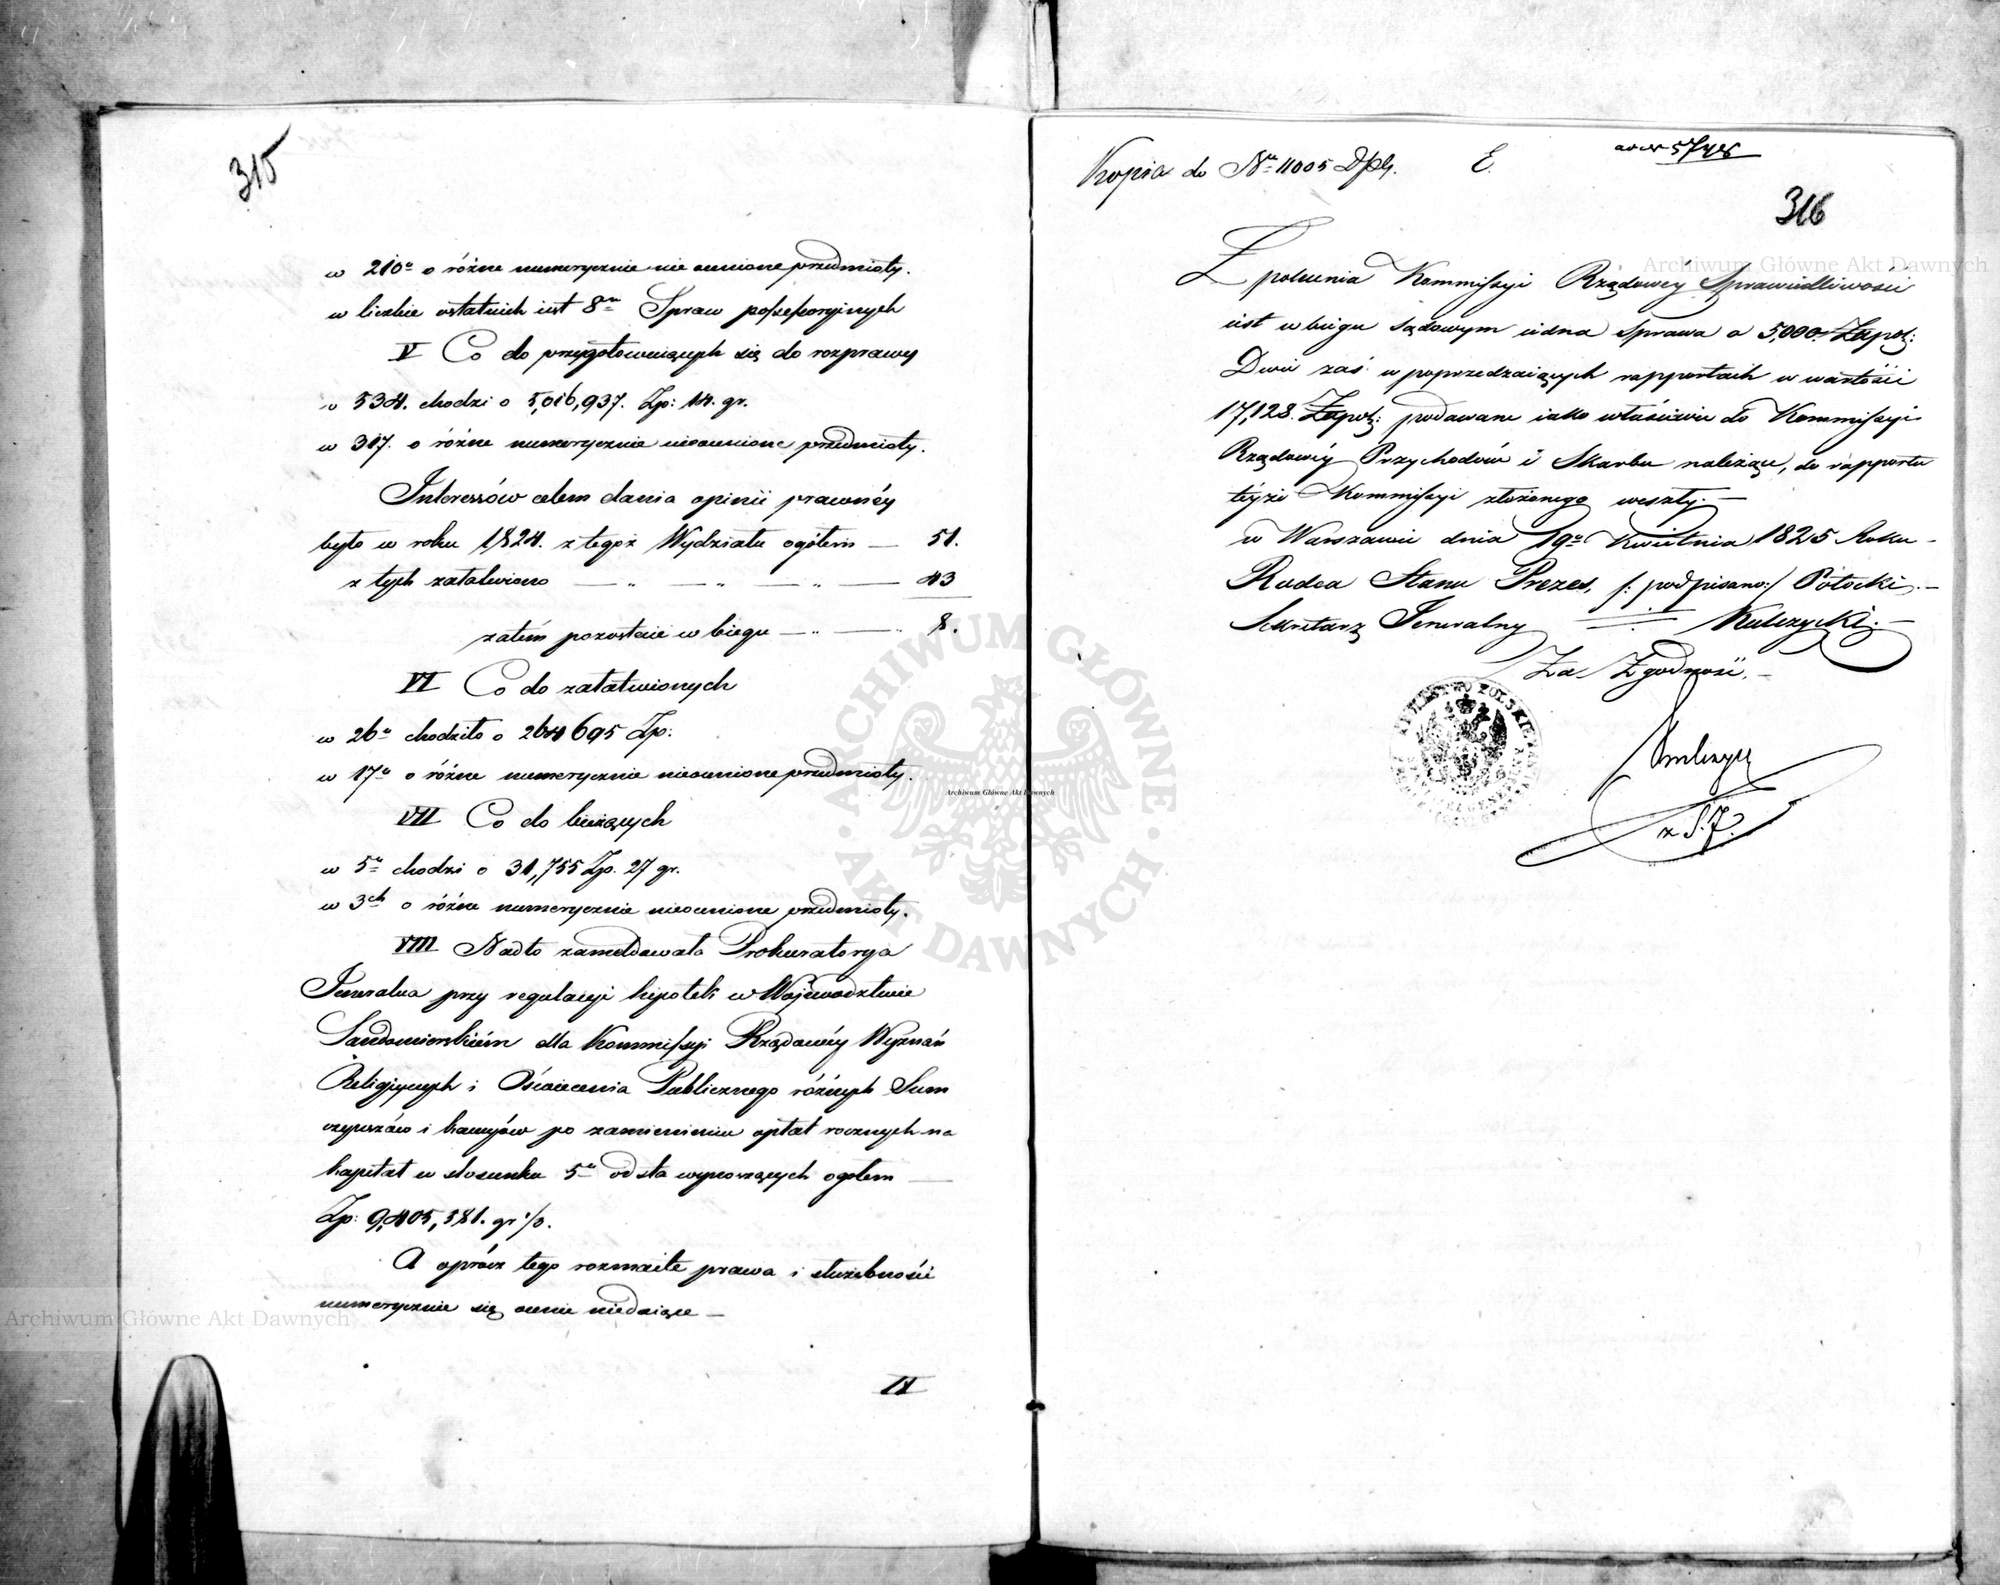 315
w 210u o różne numerycznie nie ocenione przedmioty.
w liczbie ostatnich iest 8m Spraw possessoryinych
V Co do przygotowuiących się do rozprawy
w 534. chodzi o 5,016,937. Zp: 14. gr.
w 317. o różne numerycznie nieocenione przedmioty.
Interessów celem dania opinii prawnéy
było w roku 1824. z tegoż Wydziału ogółem — 51.
z tych załatwiono — „ — „ — „ — 43
zatém pozostaie w biegu — „ — „ 8.
VI Co do załatwionych
w 26u chodziło o 264695 Zp:
w 17u o różne numerycznie nieocenione przedmioty.
VII Co do bieżących
w 5u chodzi o 31,755 Zp. 27 gr.
w 3ch o różne numerycznie nieocenione przedmioty.
VIII Nadto zameldowała Prokuratorya
Jeneralna przy regulacyi hipotek w Województwie
Sandomierskiém dla Kommissyi Rządowéy Wyznań
Religijnych i Oświecenia Publicznego różnych Sum
czynszów i kanonów po zamienieniu opłat rocznych na
kapitał w stosunku 5u od sta wynoszących ogółem —
Zp: 9,405,381. gr
A oprócz tego rozmaite prawa i służebności
numerycznie się ocenić niedaiące —
IX
Kopia do No 11005 E.
316
Z polecenia Kommissyi Rządowéy Sprawiedliwości
iest w biegu sądowym iedna sprawa o 5,000. Złpol:
Dwie zaś w poprzedzaiących rapportach w wartości
17,128. Złpol: podawane iako właściwie do Kommissyi
Rządowéy Przychodów i Skarbu należące, do rapportu
téyże Kommissyi złożonego weszły. —
w Warszawie dnia 19o Kwietnia 1825 Roku —
Radca Stanu Prezes, /: podpisano:/ Potocki. —
Sekretarz Jeneralny — Kulczycki. —
Za Zgodność. —
Kulczycki
z S. J.
Archiwum Główne Akt Dawnych
ARCHIWUM GŁÓWNE · AKT DAWNYCH ·
Archiwum Główne Akt Dawnych
Archiwum Główne Akt Dawnych